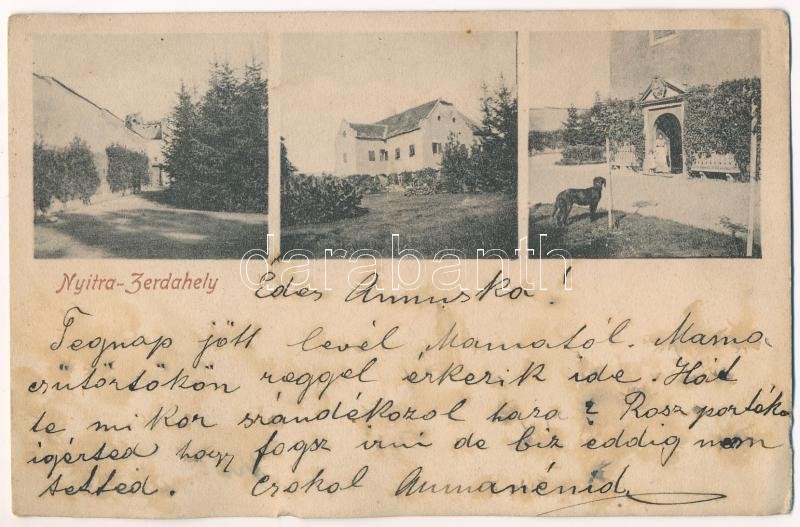 Nyitra-Zerdahely
darabanth
Édes Annuska!
Tegnap jött levél Mamától. Mama
csütörtökön reggel érkezik ide. Hát
te mikor szándékozol haza? Rosz portéka
igérted hogy fogsz irni de biz eddig nem
tetted. Csokol Annanénid